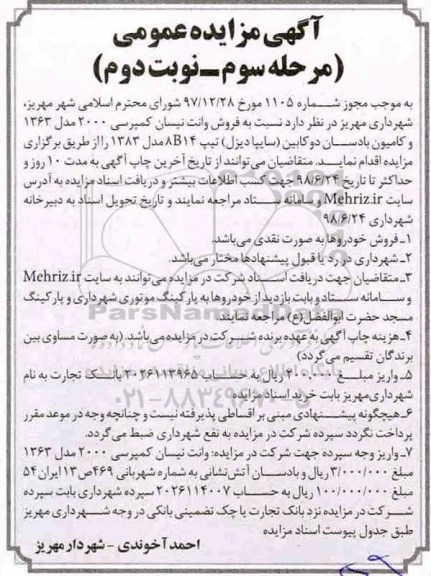 آگهی مزایده عمومی
(مرحله سوم ـ نوبت دوم)
به موجب مجوز شماره ۱۱۰۵ مورخ ۹۷/۱۲/۲۸ شورای محترم اسلامی شهر مهریز،
شهرداری مهریز در نظر دارد نسبت به فروش وانت نیسان کمپرسی ۲۰۰۰ مدل ۱۳۶۳
و کامیون بادسان دوکابین (سایپا دیزل) تیپ 8B14 مدل ۱۳۸۳ را از طریق برگزاری
مزایده اقدام نماید. متقاضیان می‌توانند از تاریخ آخرین چاپ آگهی به مدت ۱۰ روز و
حداکثر تا تاریخ ۹۸/۶/۲۴ جهت کسب اطلاعات بیشتر و دریافت اسناد مزایده به آدرس
سایت Mehriz.ir و سامانه ستاد مراجعه نمایند و تاریخ تحویل اسناد به دبیرخانه
شهرداری ۹۸/۶/۲۴
۱ـ فروش خودروها به صورت نقدی می‌باشد.
۲ـ شهرداری در رد یا قبول پیشنهادها مختار می‌باشد.
۳ـ متقاضیان جهت دریافت اسناد شرکت در مزایده می‌توانند به سایت Mehriz.ir
و سامانه ستاد و بابت بازدید از خودروها به پارکینگ موتوری شهرداری و پارکینگ
مسجد حضرت ابوالفضل(ع) مراجعه نمایند.
۴ـ هزینه چاپ آگهی به عهده برنده شرکت در مزایده می‌باشد. (به صورت مساوی بین
برندگان تقسیم می‌گردد)
۵ـ واریز مبلغ ۲۰۰,۰۰۰ ریال به حساب ۲۰۲۶۱۱۳۹۶۵ بانک تجارت به نام
شهرداری مهریز بابت خرید اسناد مزایده
۶ـ هیچگونه پیشنهادی مبنی بر اقساطی پذیرفته نیست و چنانچه وجه در موعد مقرر
پرداخت نگردد سپرده شرکت در مزایده به نفع شهرداری ضبط می‌گردد.
۷ـ واریز وجه سپرده جهت شرکت در مزایده: وانت نیسان کمپرسی ۲۰۰۰ مدل ۱۳۶۳
مبلغ ۳/۰۰۰/۰۰۰ ریال و بادسان آتش‌نشانی به شماره شهربانی ۴۶۹ص۱۳ ایران ۵۴
مبلغ ۱۰۰/۰۰۰/۰۰۰ ریال به حساب ۲۰۲۶۱۱۴۰۰۷ سپرده شهرداری بابت سپرده
شرکت در مزایده نزد بانک تجارت یا چک تضمینی بانکی در وجه شهرداری مهریز
طبق جدول پیوست اسناد مزایده
احمد آخوندی - شهردار مهریز
ParsNamadData
۰۲۱-۸۸۳۴۹۶۷۰-۵